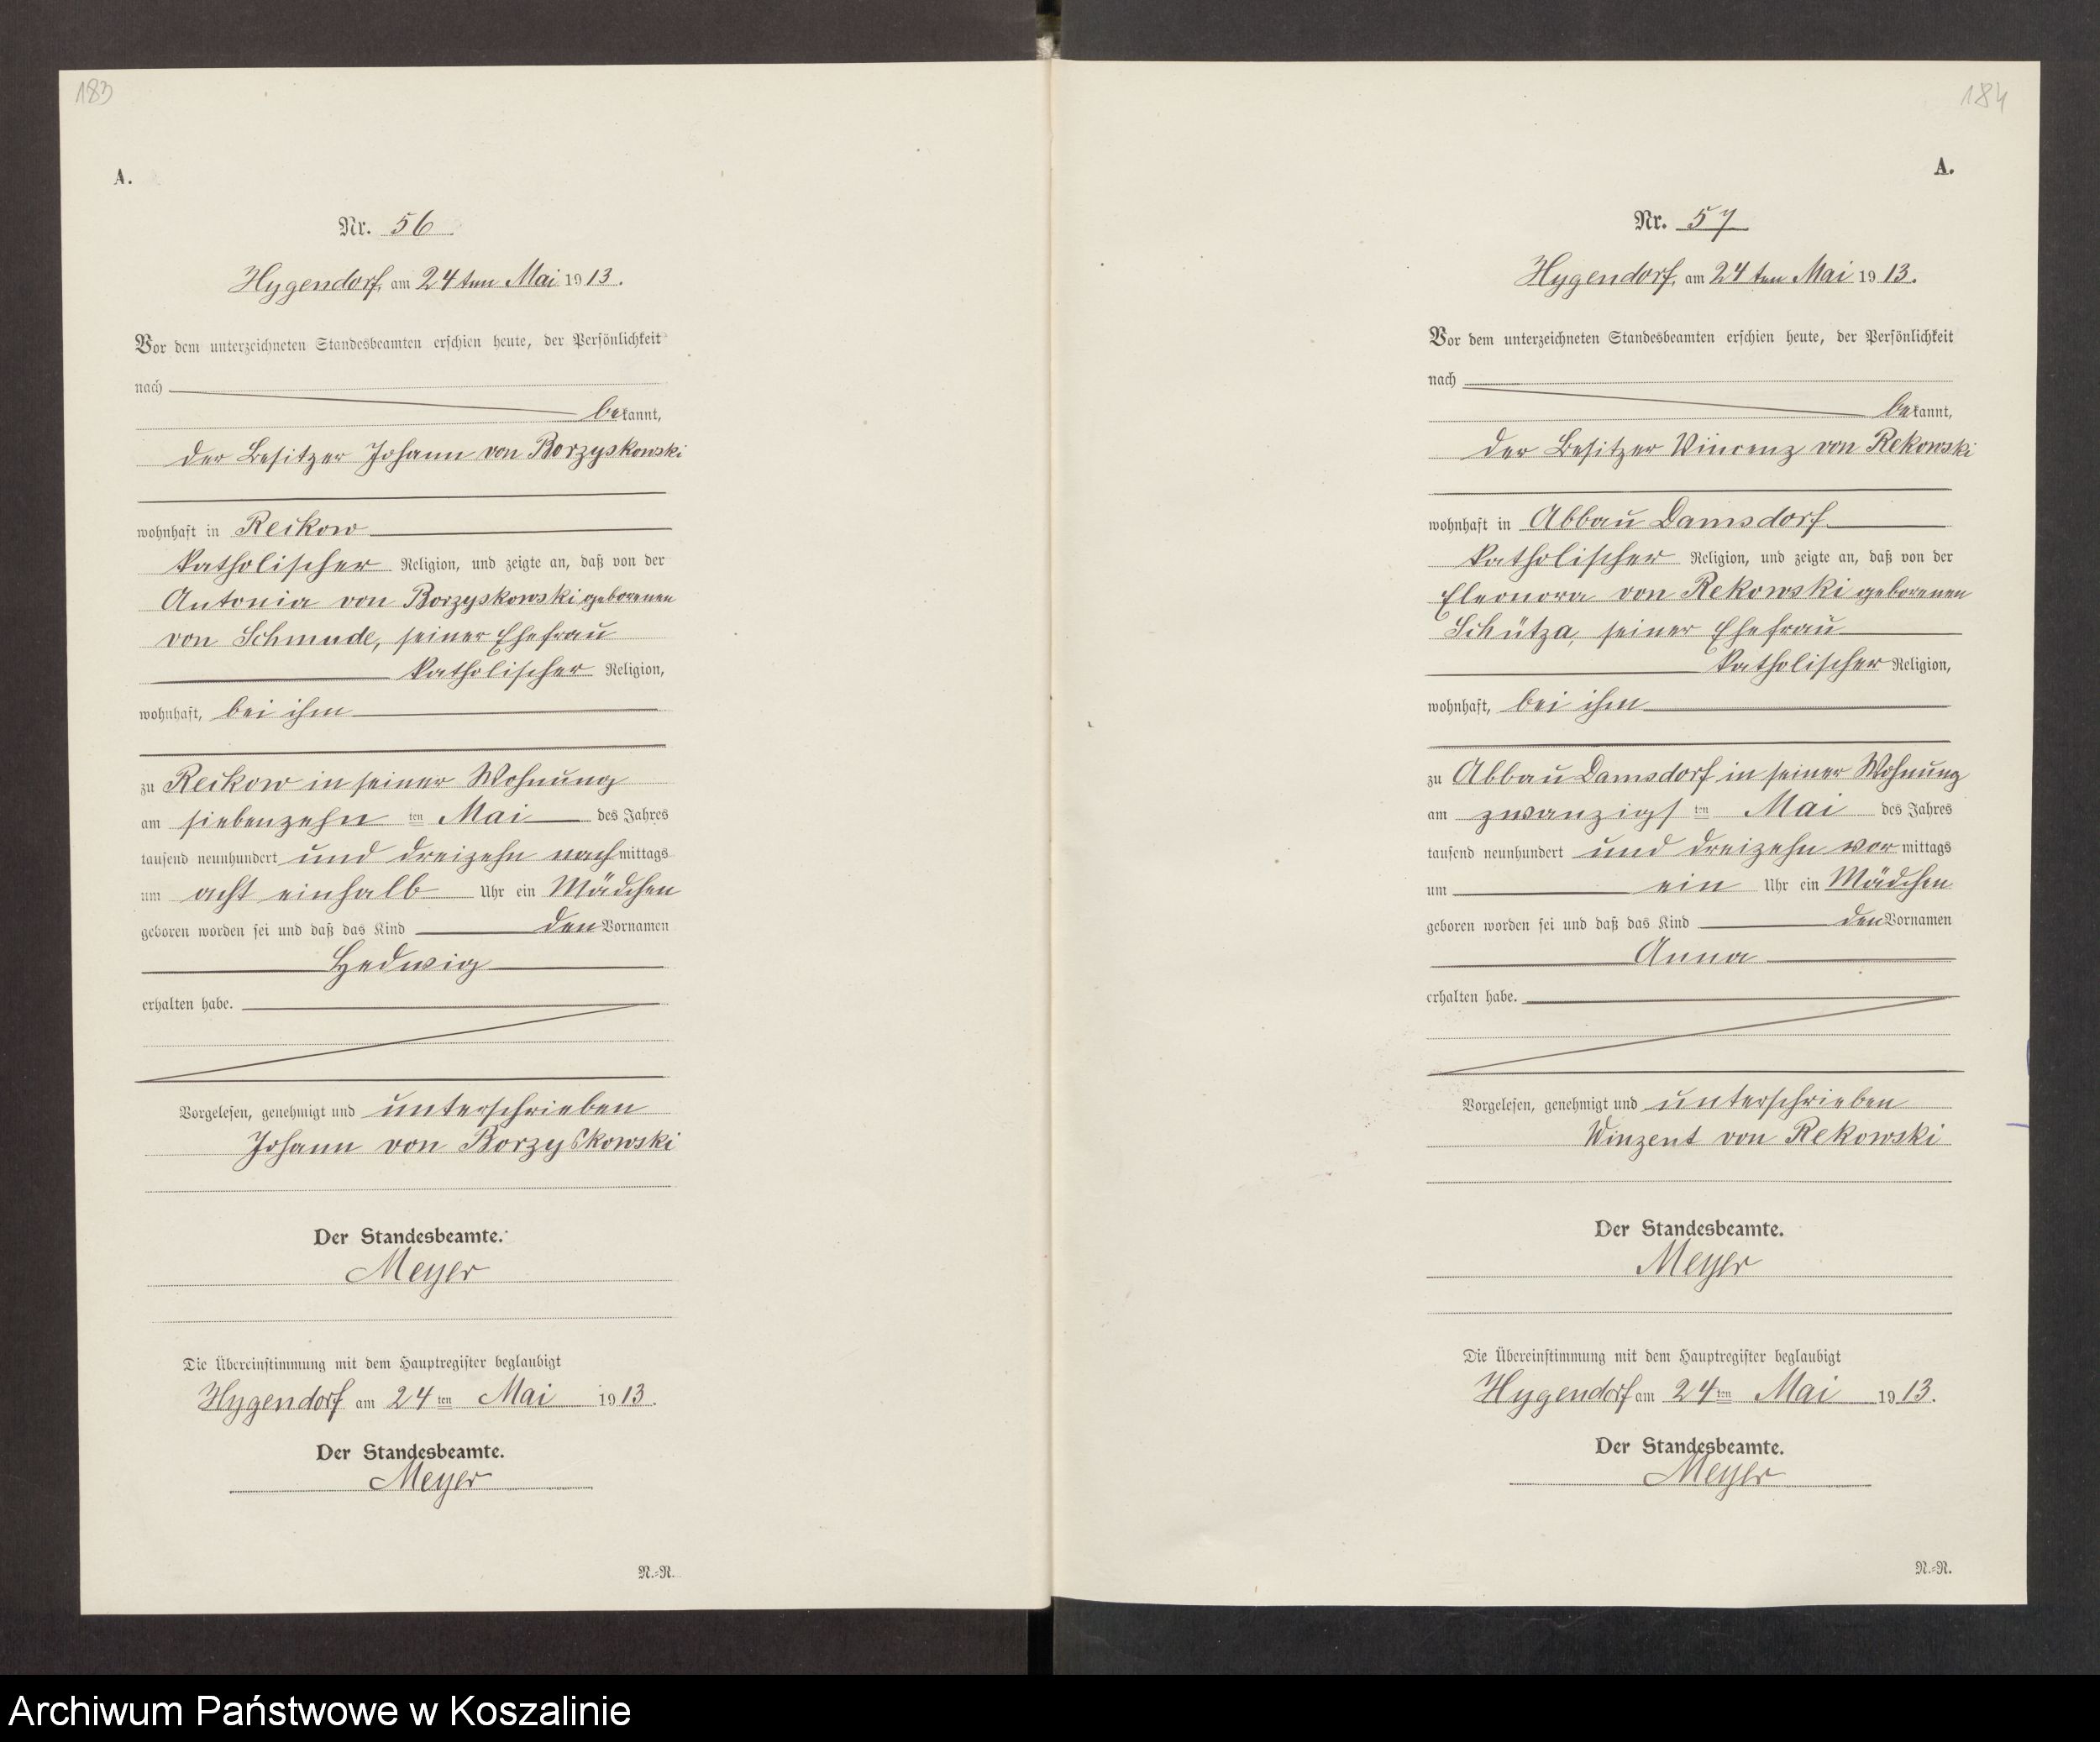 183
A.
Nr. 56
Hygendorf, am 24ten Mai 1913.
Vor dem unterzeichneten Standesbeamten erschien heute, der Persönlichkeit
nach
bekannt,
der Besitzer Johann von Borzyskowski
wohnhaft in Reikow
katholischer Religion, und zeigte an, daß von der
Antonia von Borzyskowski geborenen
von Schmude, seiner Ehefrau
katholischer Religion,
wohnhaft, bei ihm
zu Reikow in seiner Wohnung
am siebenzehn ten Mai des Jahres
tausend neunhundert und dreizehn nachmittags
um acht einhalb Uhr ein Mädchen
geboren worden sei und daß das Kind den Vornamen
Hedwig
erhalten habe.
Vorgelesen, genehmigt und unterschrieben
Johann von Borzyskowski
Der Standesbeamte.
Meyer
Die Übereinstimmung mit dem Hauptregister beglaubigt
Hygendorf am 24ten Mai 1913.
Der Standesbeamte.
Meyer
N.-R.
184
A.
Nr. 57
Hygendorf, am 24ten Mai 1913.
Vor dem unterzeichneten Standesbeamten erschien heute, der Persönlichkeit
nach
bekannt,
der Besitzer Vincenz von Rekowski
wohnhaft in Abbau Damsdorf
katholischer Religion, und zeigte an, daß von der
Eleonora von Rekowski geborenen
Schütza, seiner Ehefrau
katholischer Religion,
wohnhaft, bei ihm
zu Abbau Damsdorf in seiner Wohnung
am zwanzigs ten Mai des Jahres
tausend neunhundert und dreizehn vormittags
um ein Uhr ein Mädchen
geboren worden sei und daß das Kind den Vornamen
Anna
erhalten habe.
Vorgelesen, genehmigt und unterschrieben
Winzent von Rekowski
Der Standesbeamte.
Meyer
Die Übereinstimmung mit dem Hauptregister beglaubigt
Hygendorf am 24ten Mai 1913.
Der Standesbeamte.
Meyer
N.-R.
Archiwum Państwowe w Koszalinie